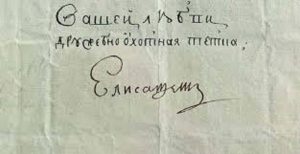 Вашей любви
дружебноохотная тетка
Елисавет